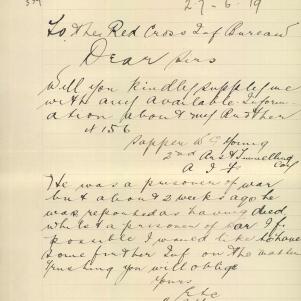 27-6-19
To, The Red Cross Inf Bureau
Dear Sirs
Will you kindly supply me
with any available Inform-
ation about my Brother
4156
Sapper W G Young
2nd Aust Tunnelling Coy
A I F
He was a prisoner of war
but about 2 weeks ago he
was reported as having died
whilst a prisoner of war If
possible I would like to have
some further Inf on the matter
Trusting you will oblige
Yours
Etc